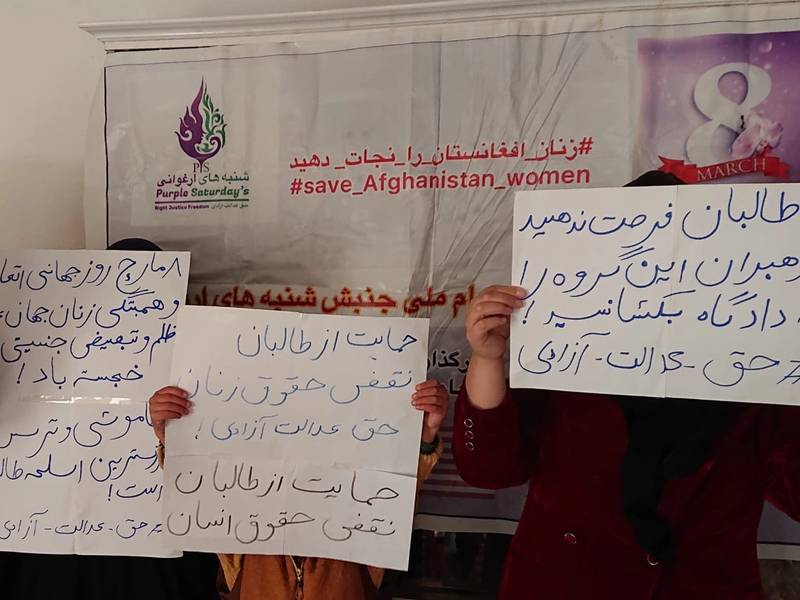 PJS
شنبه های ارغوانی
Purple Saturday's
Right Justice Freedom حق عدالت آزادی
#زنان_افغانستان_را_نجات_دهید
#save_Afghanistan_women
8
MARCH
ملی جنبش شنبه های
۸ مارچ روز جهانی
و همبستگی زنان جهان
ظلم و تبعیض جنسیتی
خجسته باد!
و ترس
اسلحه
است!
# حق - عدالت - آزادی
حمایت از طالبان
نقض حقوق زنان
حق عدالت آزادی!
حمایت از طالبان
نقض حقوق انسان
طالبان فرصت ندهید
رهبران این گروه را
دادگاه بکشانید!
# حق - عدالت - آزادی